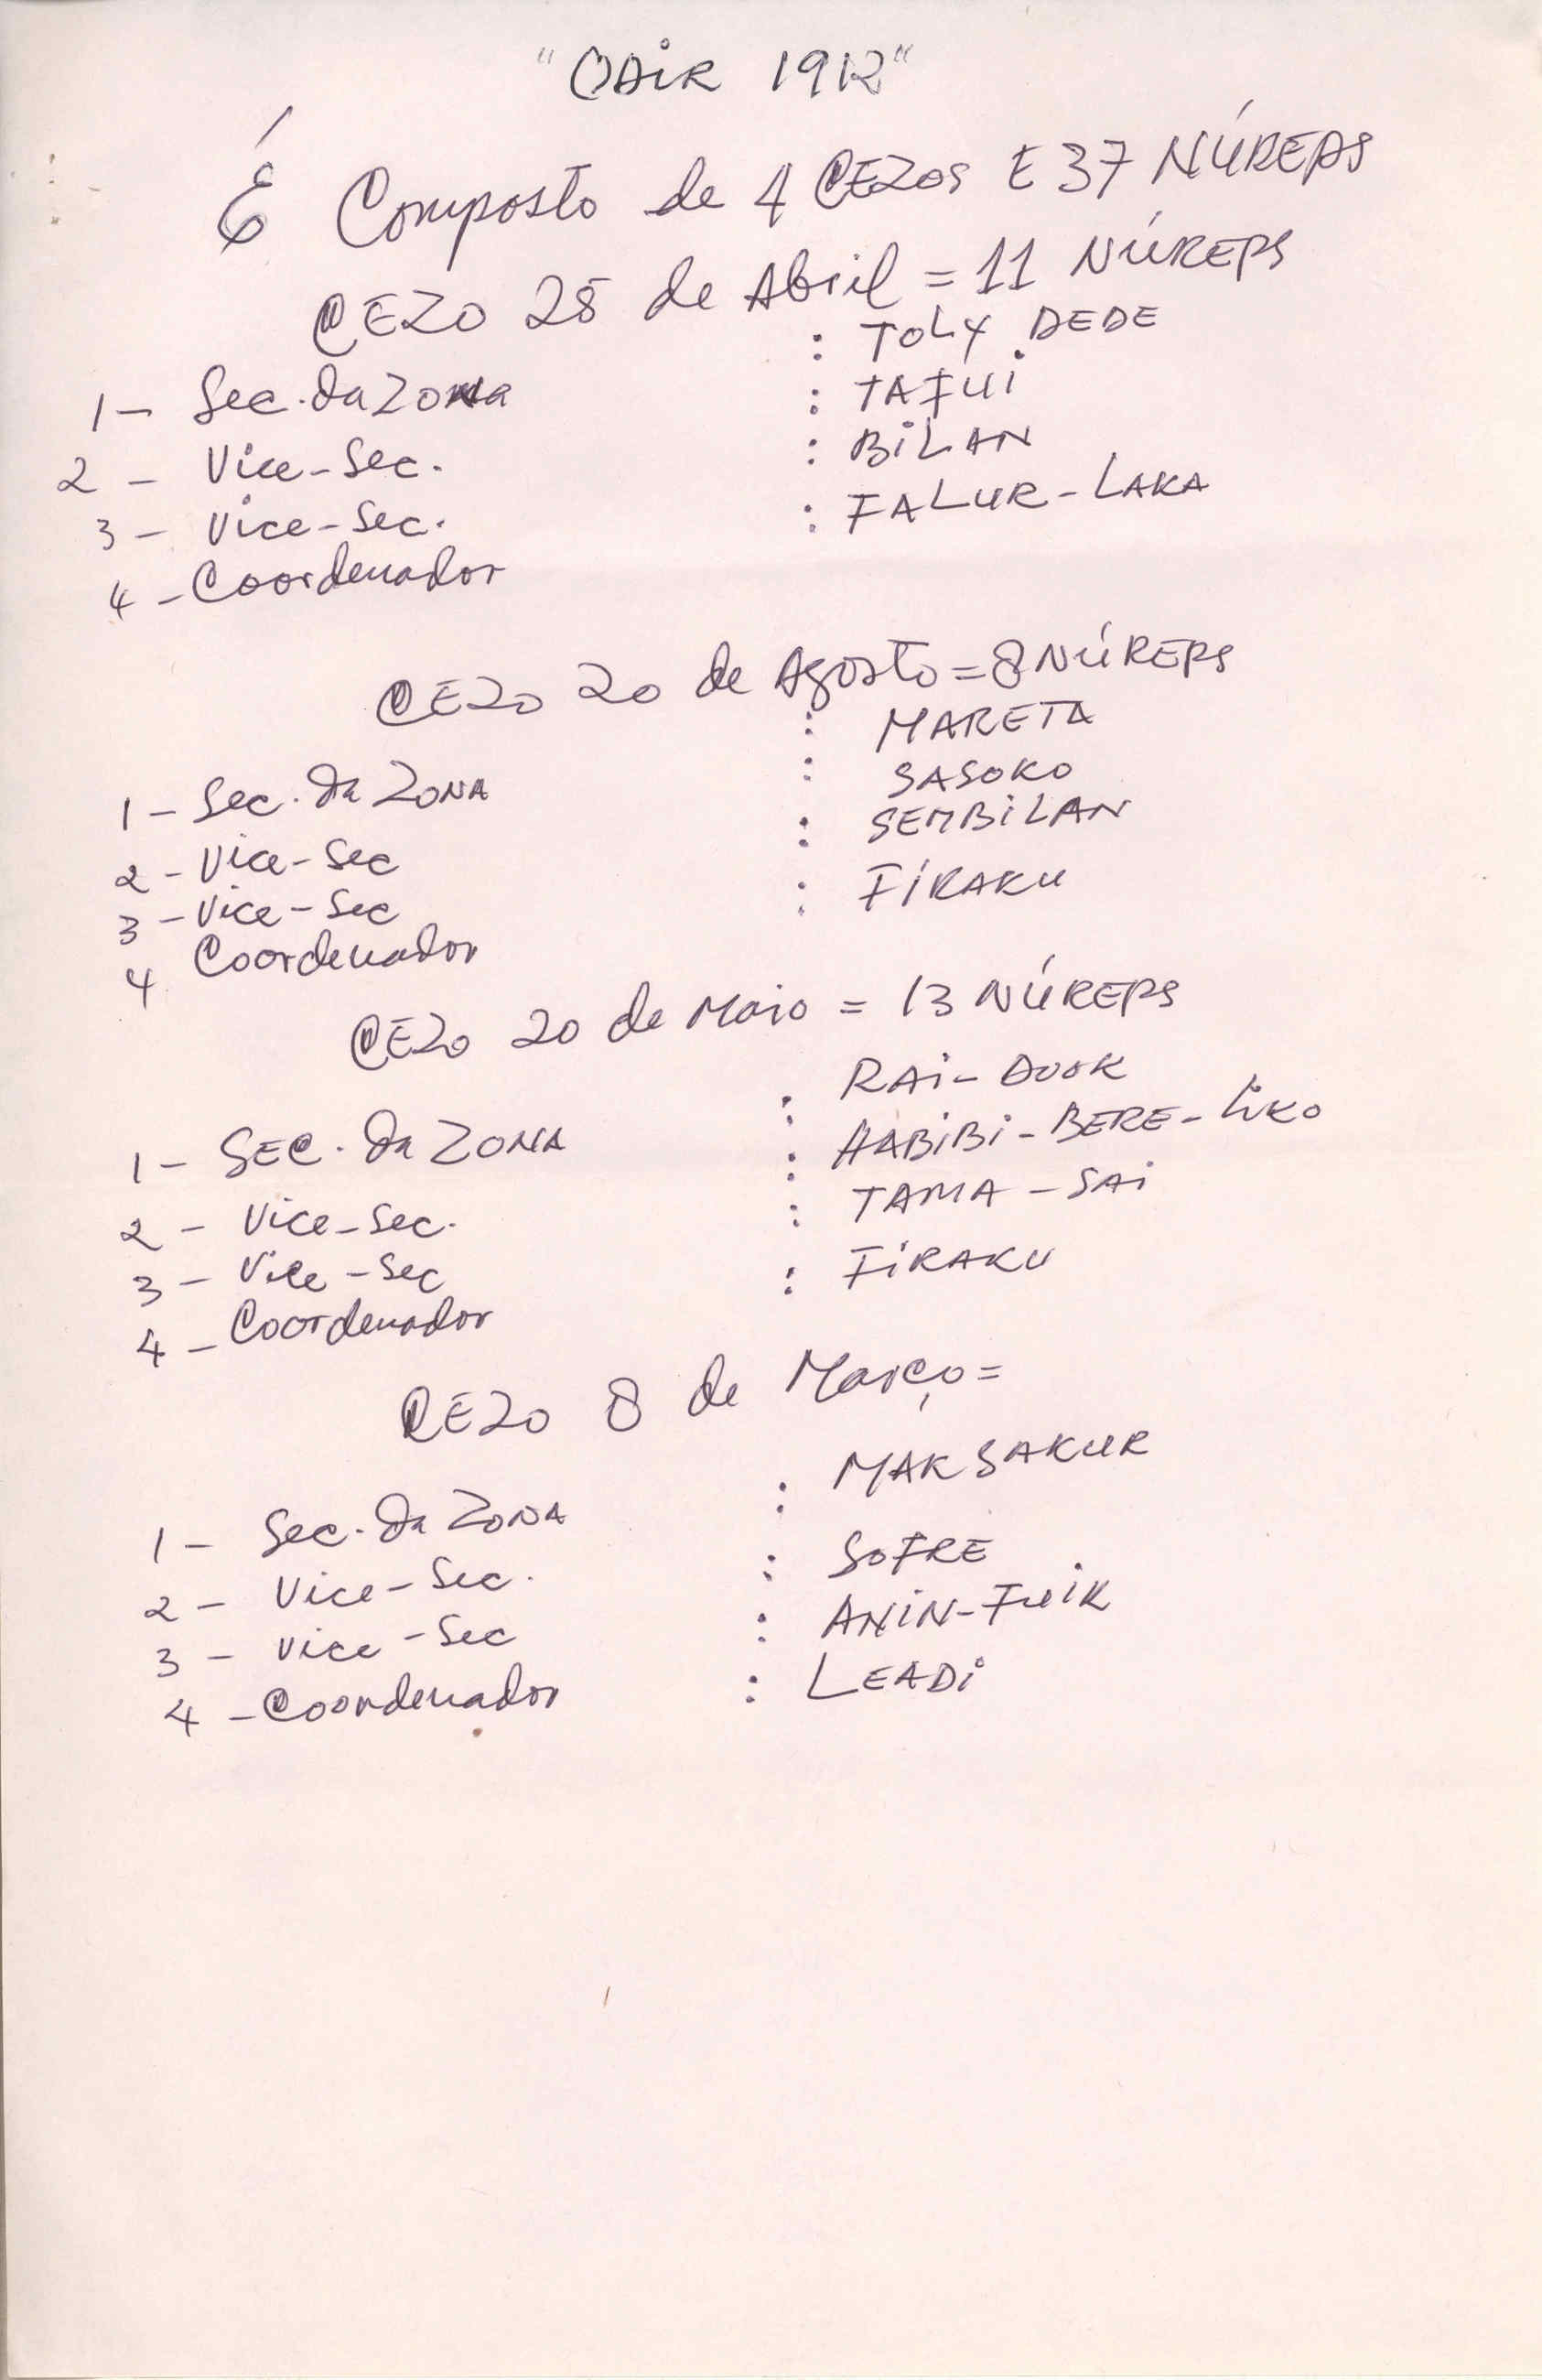 "ODIR 1912"
É Composto de 4 CEZOS E 37 NÚREPS
CEZO 25 de Abril = 11 NÚREPS
1 - Sec. da Zona : TOLY DEDE
2 - Vice-Sec. : TAFUI
3 - Vice-Sec. : BiLAN
4 - Coordenador : FALUR-LAKA
CEZO 20 de Agosto = 8 NÚREPS
1 - Sec. da ZONA : MARETA
2 - Vice-Sec : SASOKO
3 - Vice-Sec : SEMBiLAN
4 Coordenador : FiRAKU
CEZO 20 de Maio = 13 NÚREPS
1 - SEC. da ZONA : RAi-DOOK
2 - Vice-Sec. : HABiBi-BERE-LiKO
3 - Vice-Sec : TAMA-SAi
4 - Coordenador : FiRAKU
CEZO 8 de Março =
1 - Sec. da ZONA : MAKSAKUR
2 - Vice-Sec. : SOFRE
3 - Vice-Sec : ANiN-FUiK
4 - Coordenador : LEADi